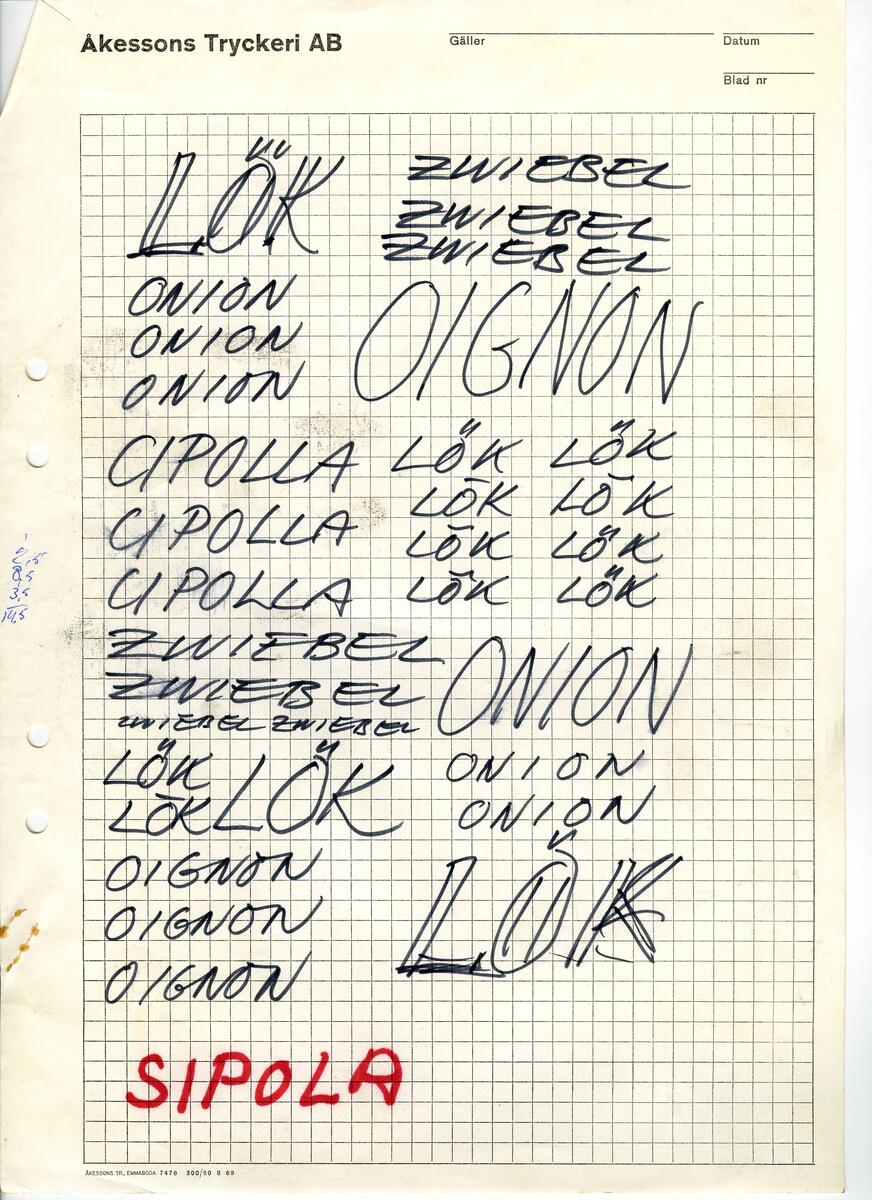 Åkessons Tryckeri AB
Gäller
Datum
Blad nr
LÖK
ZWIEBEL
ZWIEBEL
ZWIEBEL
ONION
ONION
ONION
OIGNON
CIPOLLA
CIPOLLA
CIPOLLA
LÖK LÖK
LÖK LÖK
LÖK LÖK
LÖK LÖK
8,5
3,5
14,5
ZWIEBEL
ZWIEBEL
ZWIEBEL ZWIEBEL
ONION
LÖK
LÖK
LÖK
ONION
ONION
OIGNON
OIGNON
OIGNON
LÖK
SIPOLA
ÅKESSONS TR., EMMABODA 7476 300/50 8 69